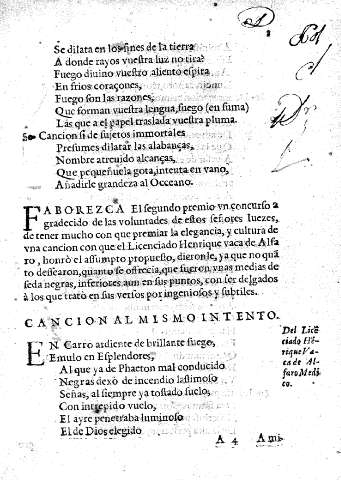 Se dilata en los fines de la tierra
A donde rayos vuestra luz no tira?
Fuego diuino vuestro aliento espira
En frios coraçones,
Fuego son las razones,
Que forman vuestra lengua, fuego (en suma)
Las que a el papel traslada vuestra pluma.
Cancion si de sujetos immortales
Presumes dilatar las alabanças,
Nombre atreuido alcanças,
Que pequeñuela gota, intenta en vano,
Añadirle grandeza al Occeano.
FABOREZCA El segundo premio vn concurso a
gradecido de las voluntades de estos señores Iuezes,
de tener mucho con que premiar la elegancia, y cultura de
vna cancion con que el Licenciado Henrique vaca de Alfa
ro, honrò el assumpto propuesto, dieronle, ya que no quã
to dessearon, quanto se ofrecia, que fueron, vnas medias de
seda negras, inferiores aun en sus puntos, con ser delgados
à los que tratò en sus versos por ingeniosos y subtiles.
CANCION AL MISMO INTENTO.
EN Carro ardiente de brillante fuego,
Emulo en Esplendores,
Al que ya de Phaeton mal conducido
Negras dexò de incendio lastimoso
Señas, al siempre ya tostado suelo,
Con intrepido vuelo,
El ayre penetraba luminoso
El de Dios elegido
Del Lice
ciado Hē
rique Va
ca de Al
faro Medi
co.
A 4 Ami